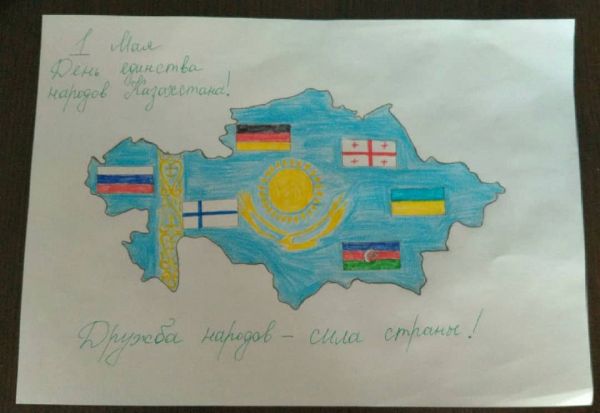 1 Мая
День единства
народов Казахстана!
Дружба народов - сила страны!